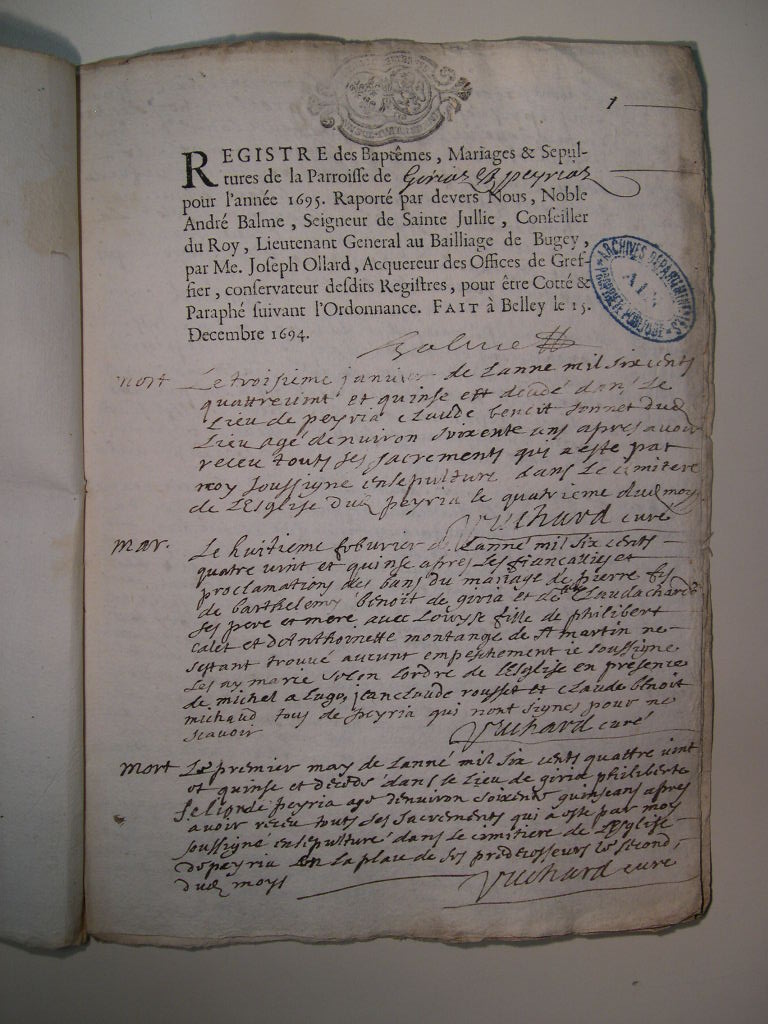 1
REGISTRE des Baptêmes, Mariages & Sepul-
tures de la Parroisse de Giriaz & peyriaz
pour l'année 1695. Raporté par devers Nous, Noble
André Balme, Seigneur de Sainte Jullie, Conseiller
du Roy, Lieutenant General au Bailliage de Bugey,
par Me. Joseph Ollard, Acquereur des Offices de Gref-
fier, conservateur desdits Registres, pour être Cotté &
Paraphé suivant l'Ordonnance. FAIT à Belley le 15.
Decembre 1694.
ARCHIVES DEPARTEMENTALES
AIN
PROPRIÉTÉ PUBLIQUE
Balme
mort Le troisieme janvier de Lanne mil six cents
quattrevint et quinse est decedé dans Le
Lieu de peyria claude benoit sonnet dud
Lieu agé denuiron soixente ans apres avoir
receu touts ses sacrements qui a este par
moy soussigne ensepulturé dans Le cimitere
de LEsglise dud peyria le quatrieme dud moys
Vuchard curé
mar. Le huitieme feburier de Lanné mil six cents
quatre vint et quinse apres Les fiancailles et
proclamations des bans du mariage de pierre fils
de barthelemy benoit de giria et de Clauda chard
ses pere et mere avec Lowyse fille de philibert
calet et dAnthoinette montange de st martin ne
sestant trouvé aucunt empeschement ie soussigne
Les ay marie selon Lordre de LEsglise en presence
de michel a Lugo, jeanclaude rousset et claude benoit
michaud tous de peyria qui nont signes pour ne
scavoir Vuchard curé
mort Le premier may de Lanné mil six cents quattre vint
et quinse et decedé dans Le Lieu de giria philiberte
de peyria agé denuiron soixente quinseans apres
avoir receu touts ses sacrements qui a este par moy
soussigné ensepulturé dans Le cimitiere de LEsglise
de peyria en La place de ses predecesseurs le second
dud moys Vuchard curé